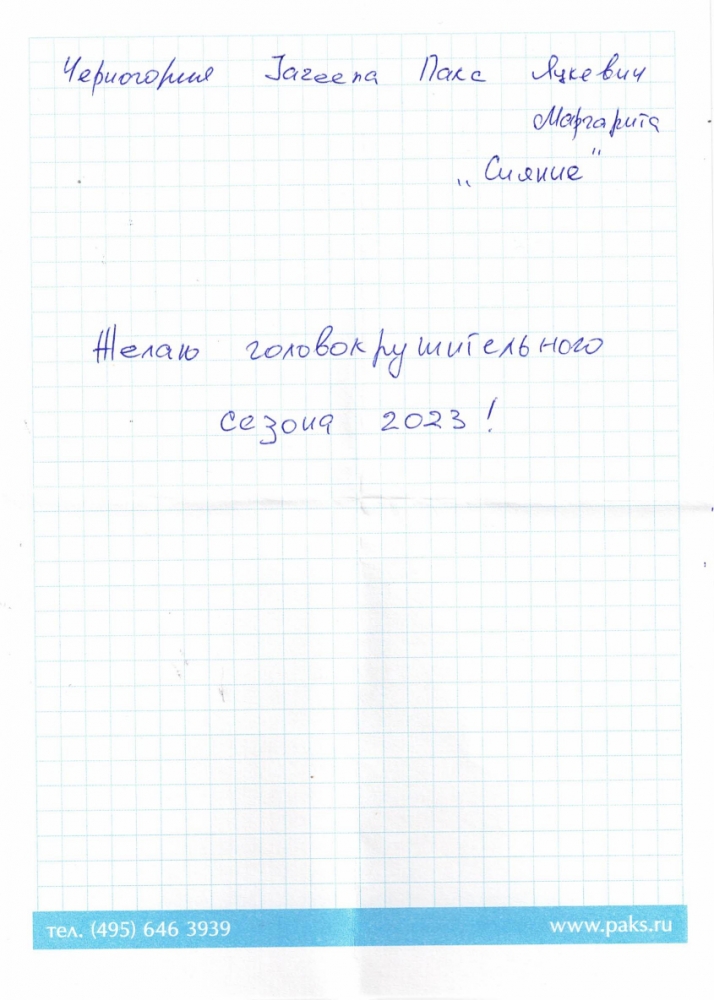 Черногория Јагеепа Пакс Яцкевич
Маргарита
„Сияние"
Желаю головокрушительного
сезона 2023!
тел. (495) 646 3939 www.paks.ru